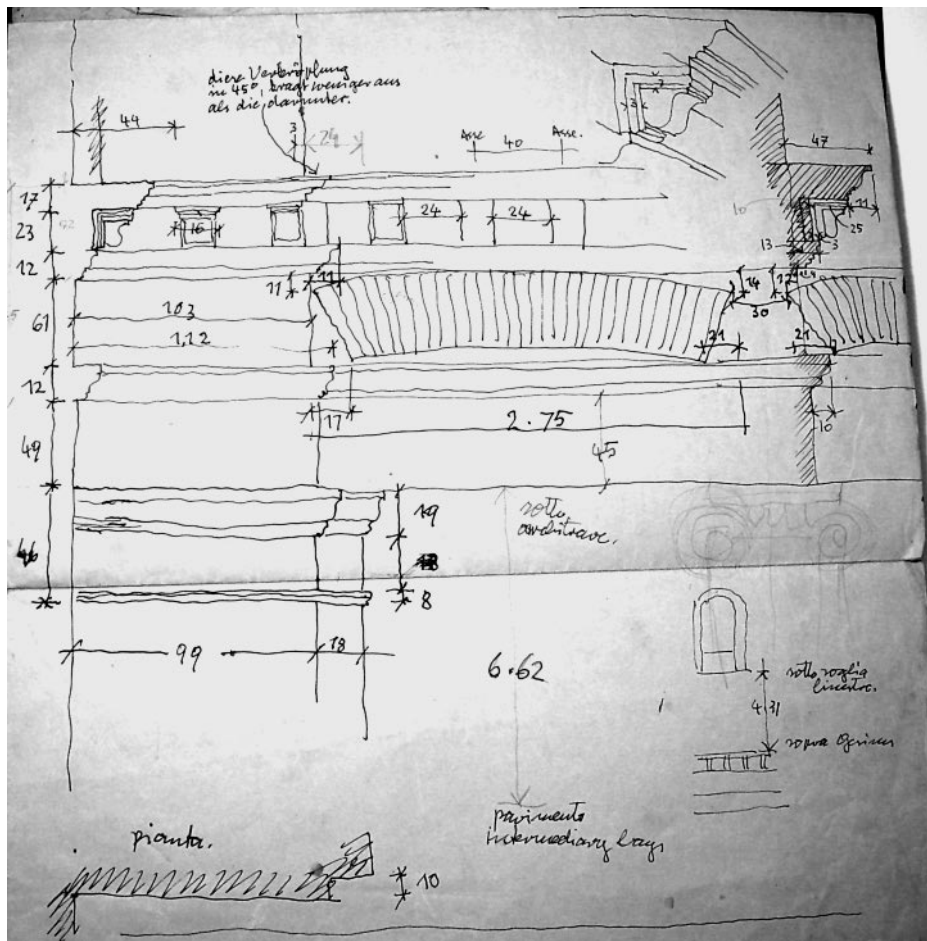 diese Verkröpfung
in 45°, kragt weniger aus
als die darunter.
44
3
24
Asse
40
Asse.
3
47
17
23
12
61
12
49
16
24
24
10
11
25
13
3
11
11
14
12
30
103
1,12
21
21
17
2.75
45
10
19
8
sotto
architrave.
99
18
6.62
sotto soglia
finestra.
4.31
sopra
pavimento
intermediary bays
pianta.
10